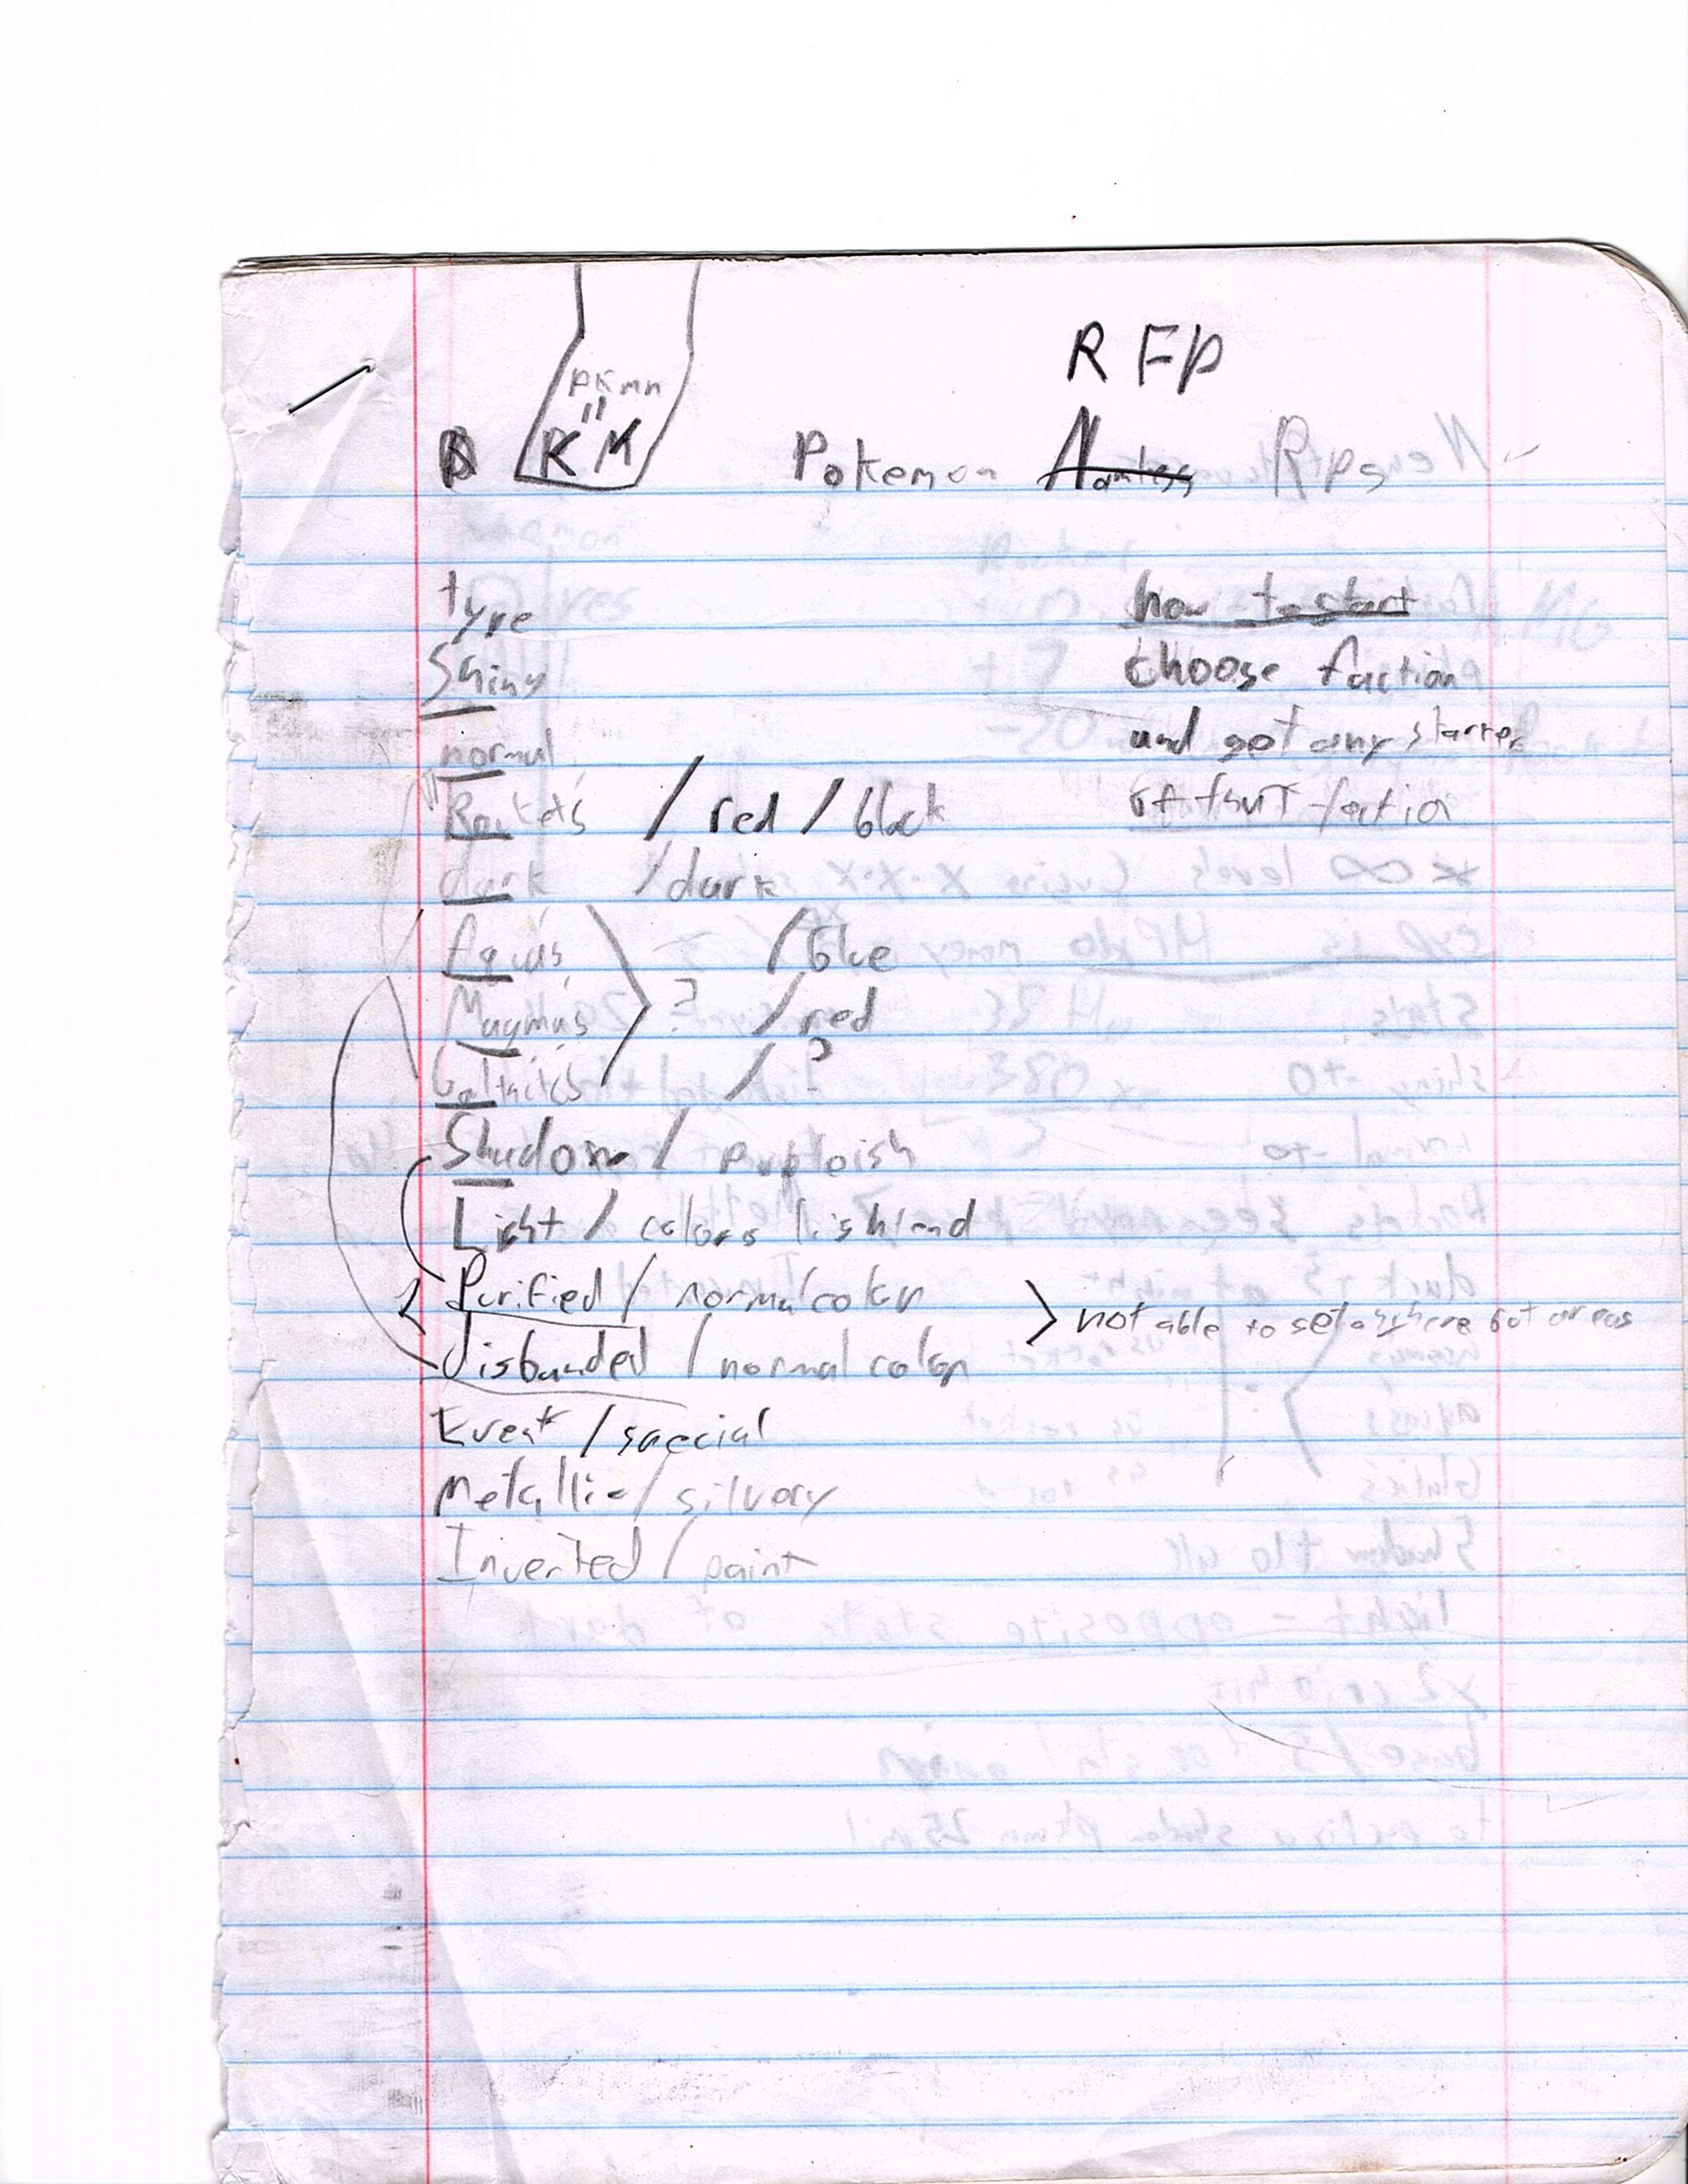 RFP
pkmn
"
KM Pokemon Namless Rps
type how to start
Shiny choose faction
normal and get any starter
Rockets / red / black of that faction
dark / dark
Aquas / blue
Magmas ? / red
/ ?
Shadow / purpleish
Light / colors
Purified / normal color
not able to areas
disbanded / normal color
Event / special
metallic / silvery
Inverted / paint